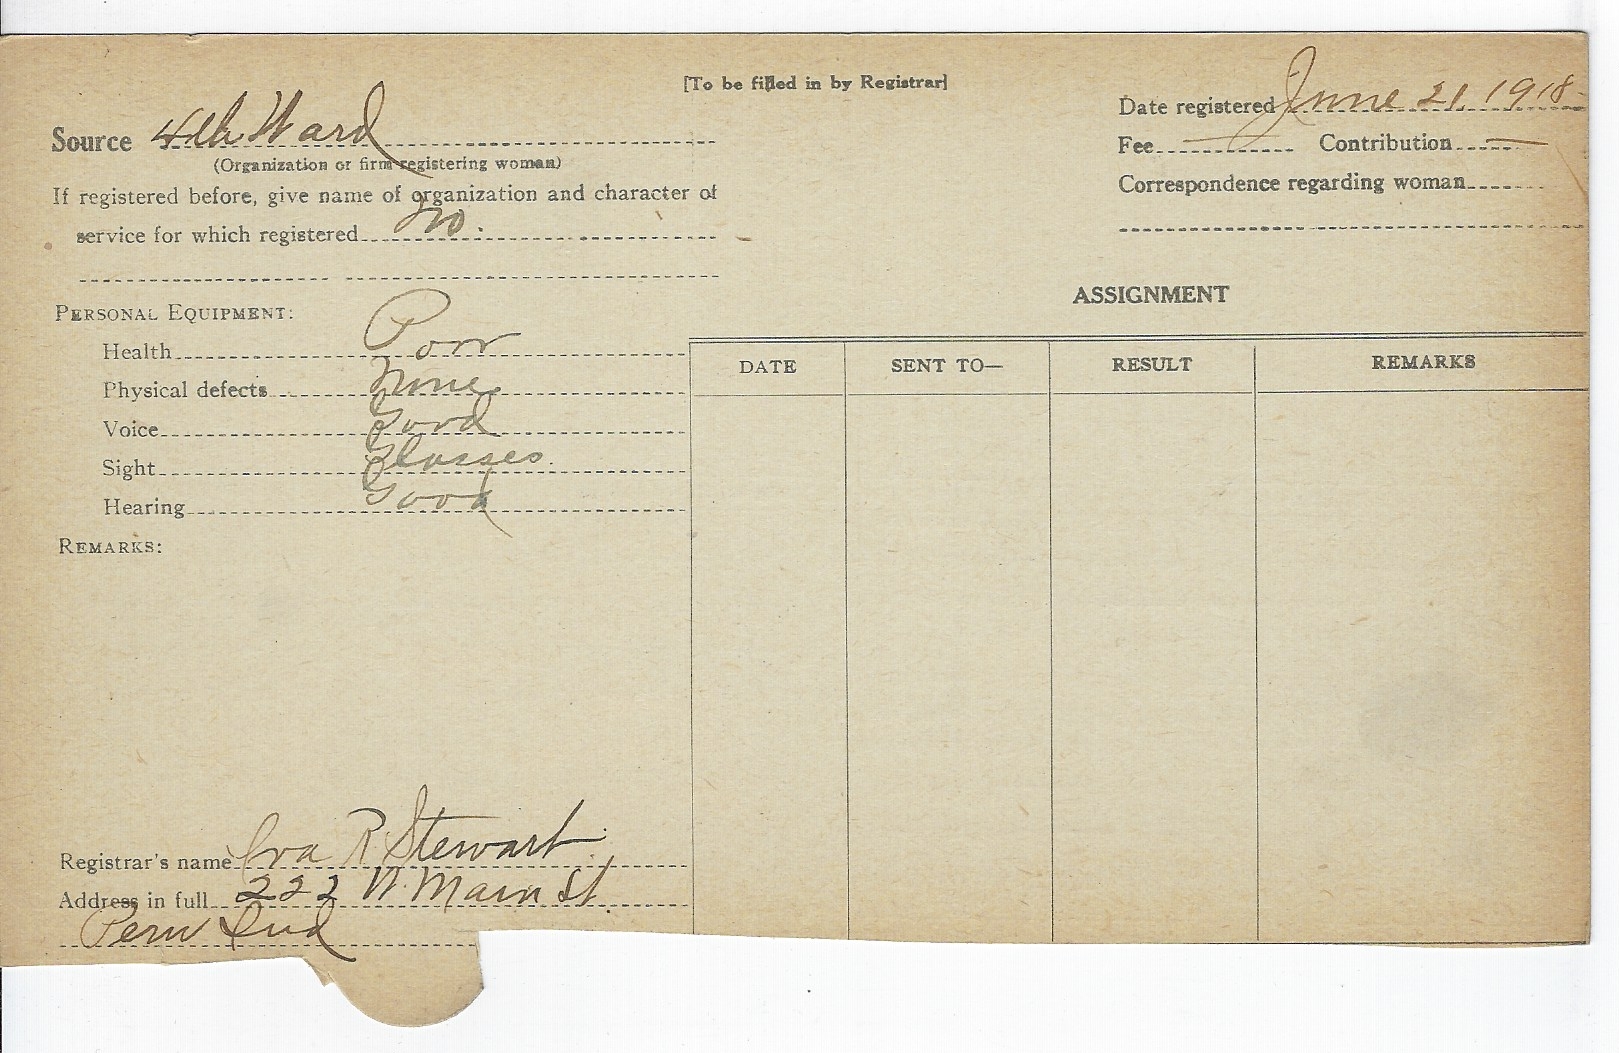 [To be filled in by Registrar]
Source 4th Ward
(Organization or firm registering woman)
If registered before, give name of organization and character of
service for which registered No.
Date registered June 21, 1918
Fee — Contribution —
Correspondence regarding woman
PERSONAL EQUIPMENT:
Health Poor
Physical defects None
Voice Good
Sight Glasses.
Hearing Good
REMARKS:
Registrar's name Iva R Stewart
Address in full 222 W. Main St.
Peru Ind
ASSIGNMENT
DATE SENT TO— RESULT REMARKS